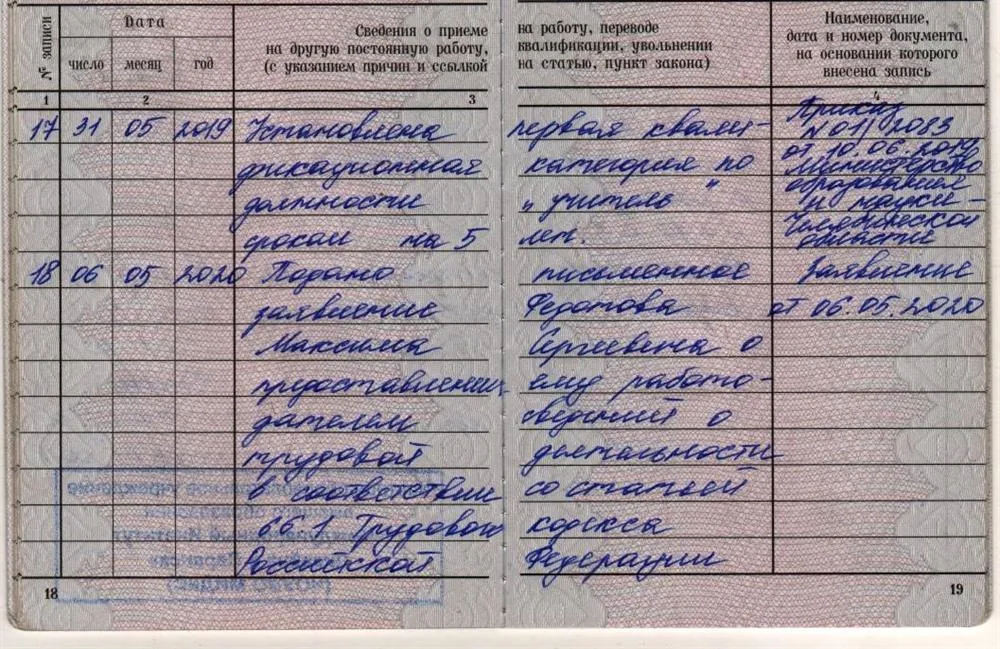 № записи Дата Сведения о приеме на работу, переводе Наименование,
на другую постоянную работу, квалификации, увольнении дата и номер документа,
число месяц год (с указанием причин и ссылкой на статью, пункт закона) на основании которого
внесена запись
1 2 3 4
17 31 05 2019 Установлена первая квали- Приказ
N 01/2083
фикационная категория по от 10.06.2019
Министерство
должности „учитель" образования
и науки
сроком на 5 лет. Челябинской
области
18 06 05 2020 Подано письменное Заявление
заявление Федотова от 06.05.2020
Максима Сергеевича о
предоставлении ему работо-
дателем сведений о
трудовой деятельности
в соответствии со статьей
66.1 Трудового кодекса
Российской Федерации
18 19